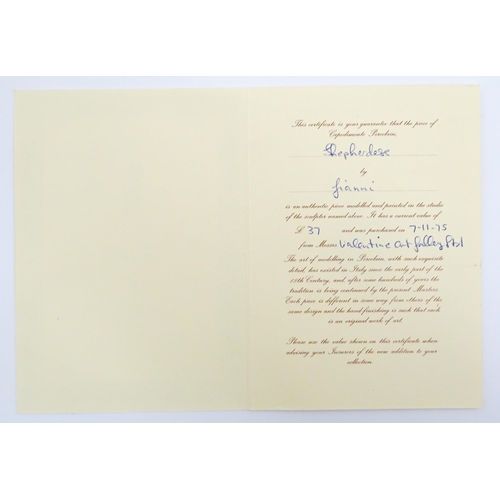 This certificate is your guarantee that the piece of
Capodimonte Porcelain
Shepherdess
by
Gianni
is an authentic piece modelled and painted in the studio
of the sculptor named above. It has a current value of
£ 37 and was purchased on 7-11-75
from Messrs Valentine Art Gallery Ltd
The art of modelling in Porcelain, with such exquisite
detail, has existed in Italy since the early part of the
18th Century, and, after some hundreds of years the
tradition is being continued by the present Masters.
Each piece is different in some way from others of the
same design and the hand finishing is such that each
is an original work of art.
Please use the value shown on this certificate when
advising your Insurers of the new addition to your
collection.